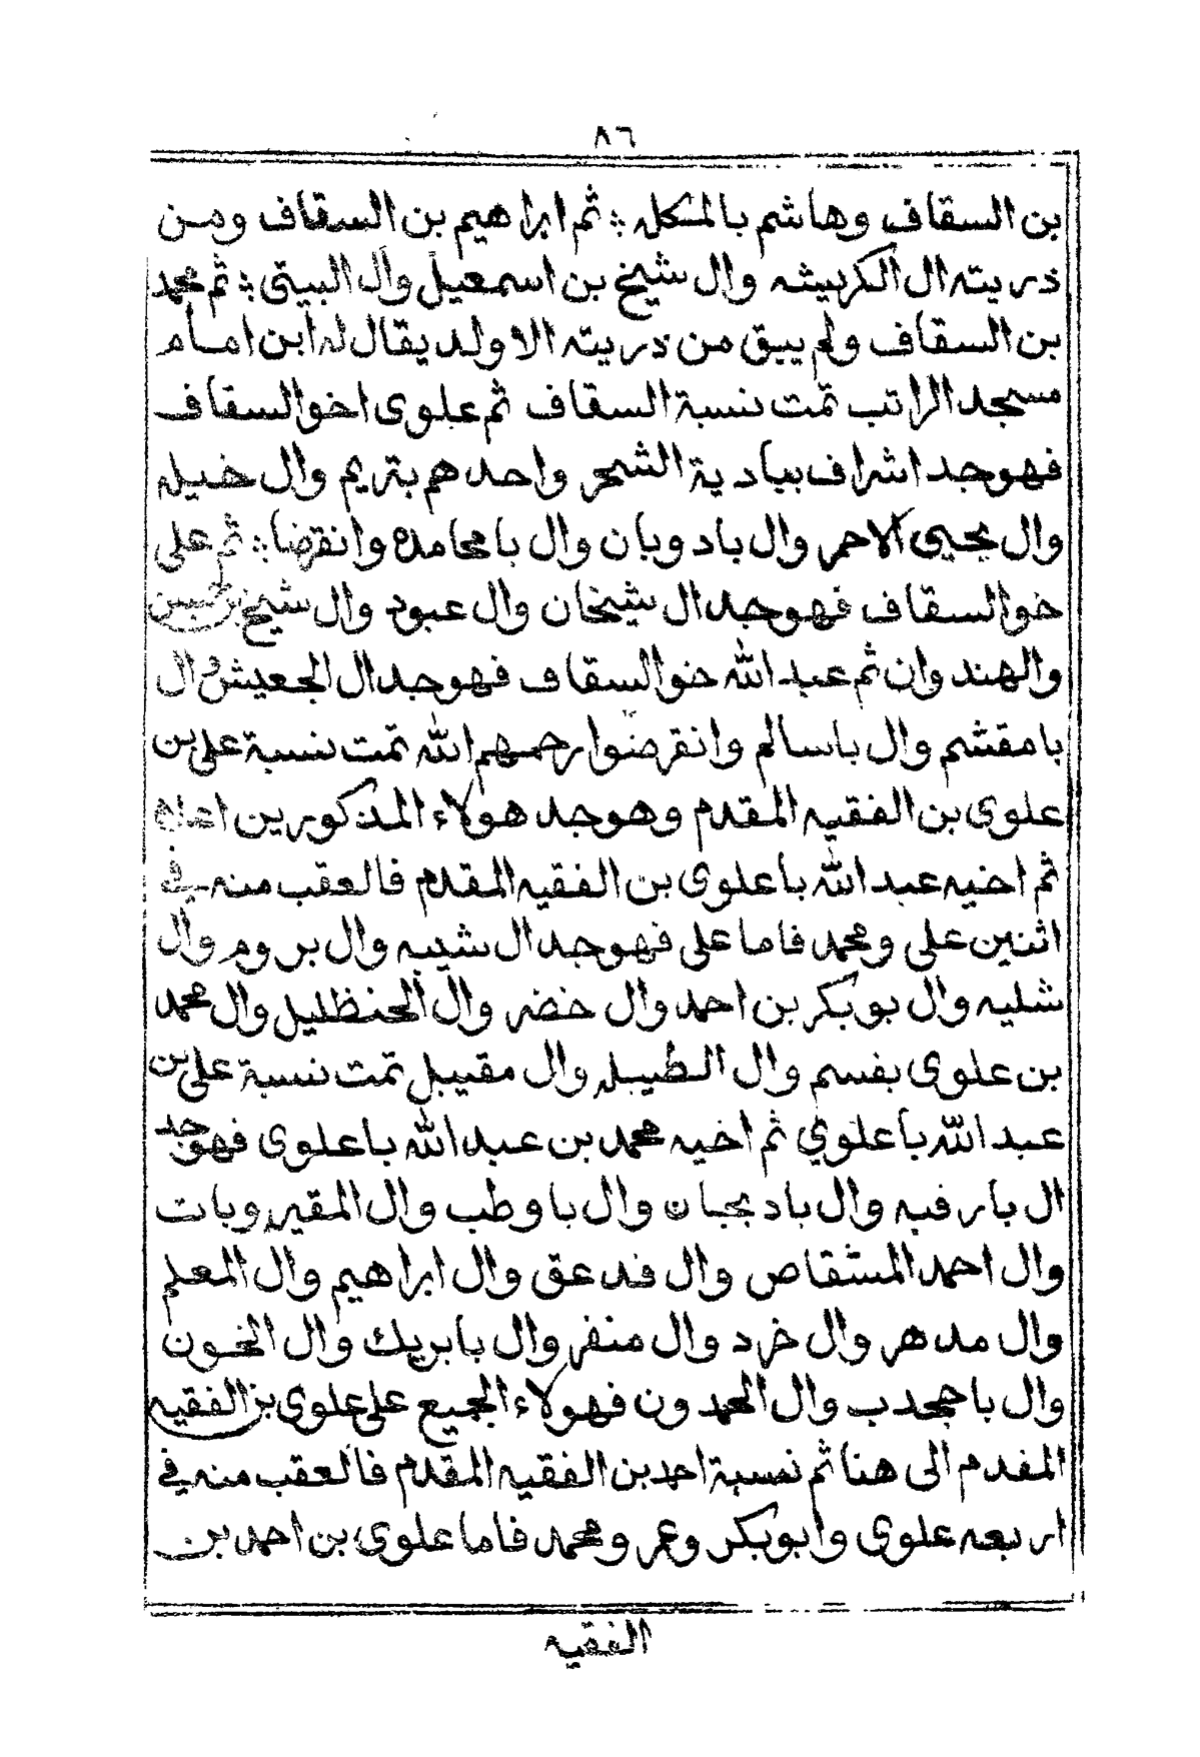 ٨٦
بن السقاف وهاشم بالمكله ؞ ثم ابراهيم بن السقاف ومن
ذريته ال الكريشه وال شيخ بن اسمعيل وال البيتي ؞ ثم محمد
بن السقاف ولم يبق من ذريته الا ولد يقال له ابن امام
مسجد الراتب تمت نسبة السقاف ثم علوى اخو السقاف
فهو جد اشراف ببادية الشحر واحدهم بتريم وال خيله
وال يحيى الاحمر وال بادويان وال بامحامده وانقرضا ؞ ثم على
خو السقاف فهو جد ال شيخان وال عبود وال شيخ بن حسين
والهندوان ثم عبد الله خو السقاف فهو جد ال الجعيش وال
بامقشم وال باسالم وانقرضوا رحمهم الله تمت نسبة على بن
علوى بن الفقيه المقدم وهو جد هولاء المذكورين اعلاه
ثم اخيه عبد الله باعلوى بن الفقيه المقدم فالعقب منه في
اثنين على ومحمد فاما على فهو جد ال شيبه وال بروم وال
شليه وال بوبكر بن احمد وال خضر وال الحنظليل وال محمد
بن علوى بقسم وال الطيبله وال مقيبل تمت نسبة على بن
عبد الله باعلوي ثم اخيه محمد بن عبد الله باعلوى فهو جد
ال بارفبه وال بادبجبان وال باوطب وال المقيروبات
وال احمد المشقاص وال فدعق وال ابراهيم وال المعلم
وال مدهر وال خرد وال منفر وال بابريك وال الخون
وال باجحدب وال الحمدون فهولاء الجميع على علوى بن الفقيه
المقدم الى هنا ثم نسبة احمد بن الفقيه المقدم فالعقب منه في
اربعه علوى وابوبكر وعمر ومحمد فاما علوى بن احمد بن
الفقيه